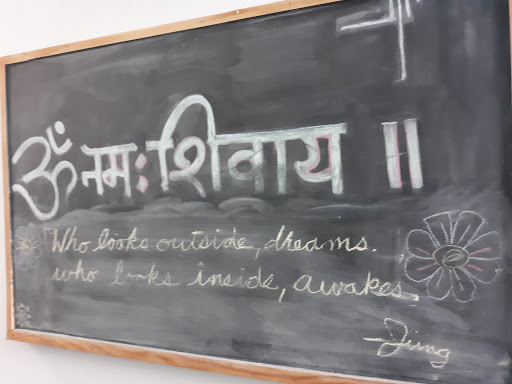 ॐ नमः शिवाय ॥
Who looks outside, dreams.
who looks inside, awakes
-Jung